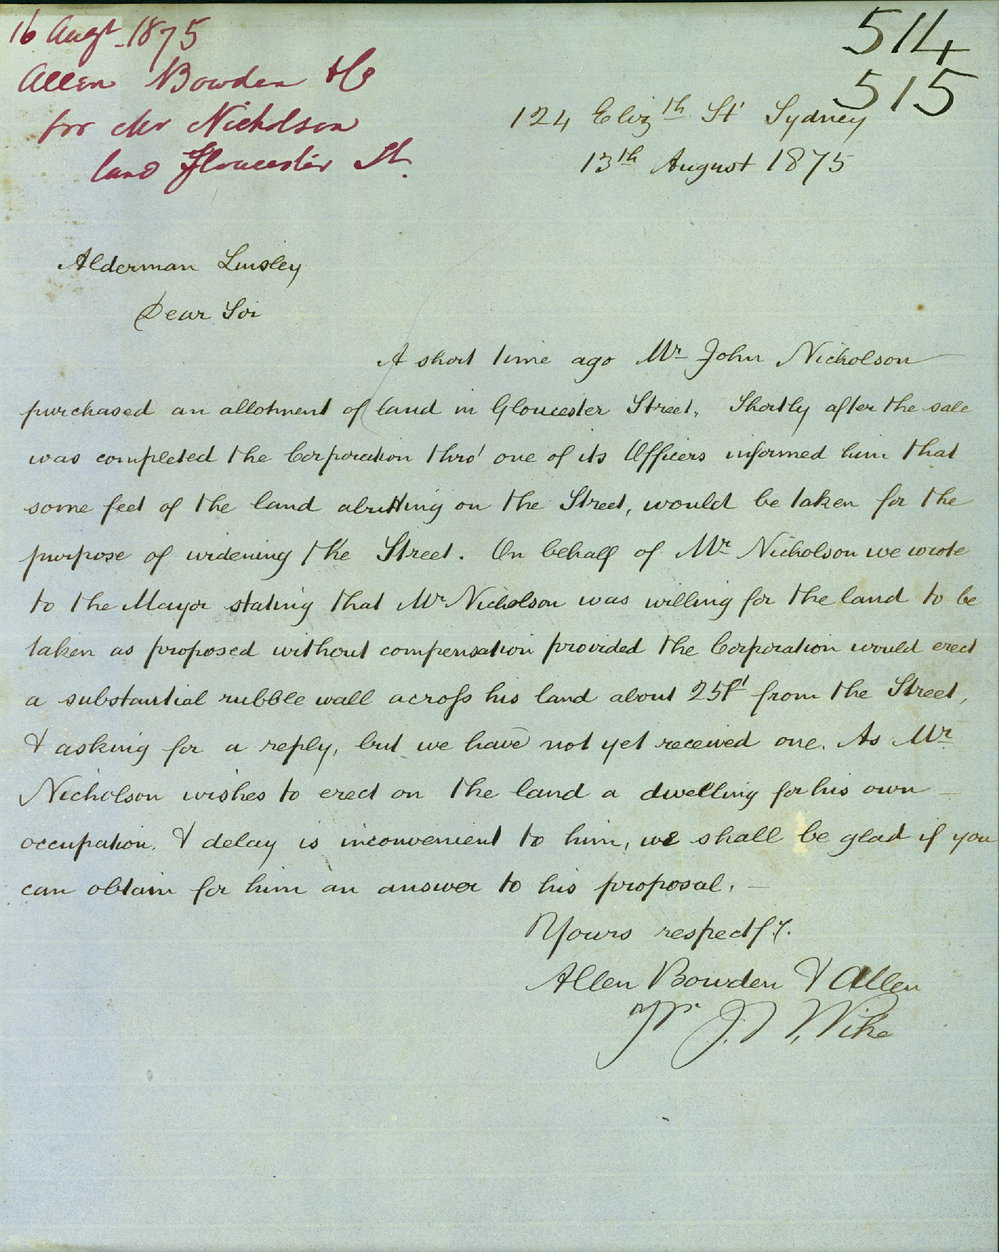 16 Augt. 1875
Allen Bowden & Co
for Mr Nicholson
land Gloucester St.
514
515
124 Elizth St Sydney
13th August 1875
Alderman Linsley
Dear Sir
A short time ago Mr John Nicholson
purchased an allotment of land in Gloucester Street, Shortly after the sale
was completed the Corporation thro' one of its Officers informed him that
some feet of the land abutting on the Street, would be taken for the
purpose of widening the Street. On behalf of Mr Nicholson we wrote
to the Mayor stating that Mr Nicholson was willing for the land to be
taken as proposed without compensation provided the Corporation would erect
a substantial rubble wall across his land about 25ft from the Street,
& asking for a reply, but we have not yet received one. As Mr
Nicholson wishes to erect on the land a dwelling for his own
occupation. & delay is inconvenient to him, we shall be glad if you
can obtain for him an answer to his proposal.
Yours respectfy.
Allen Bowden & Allen
pr J.